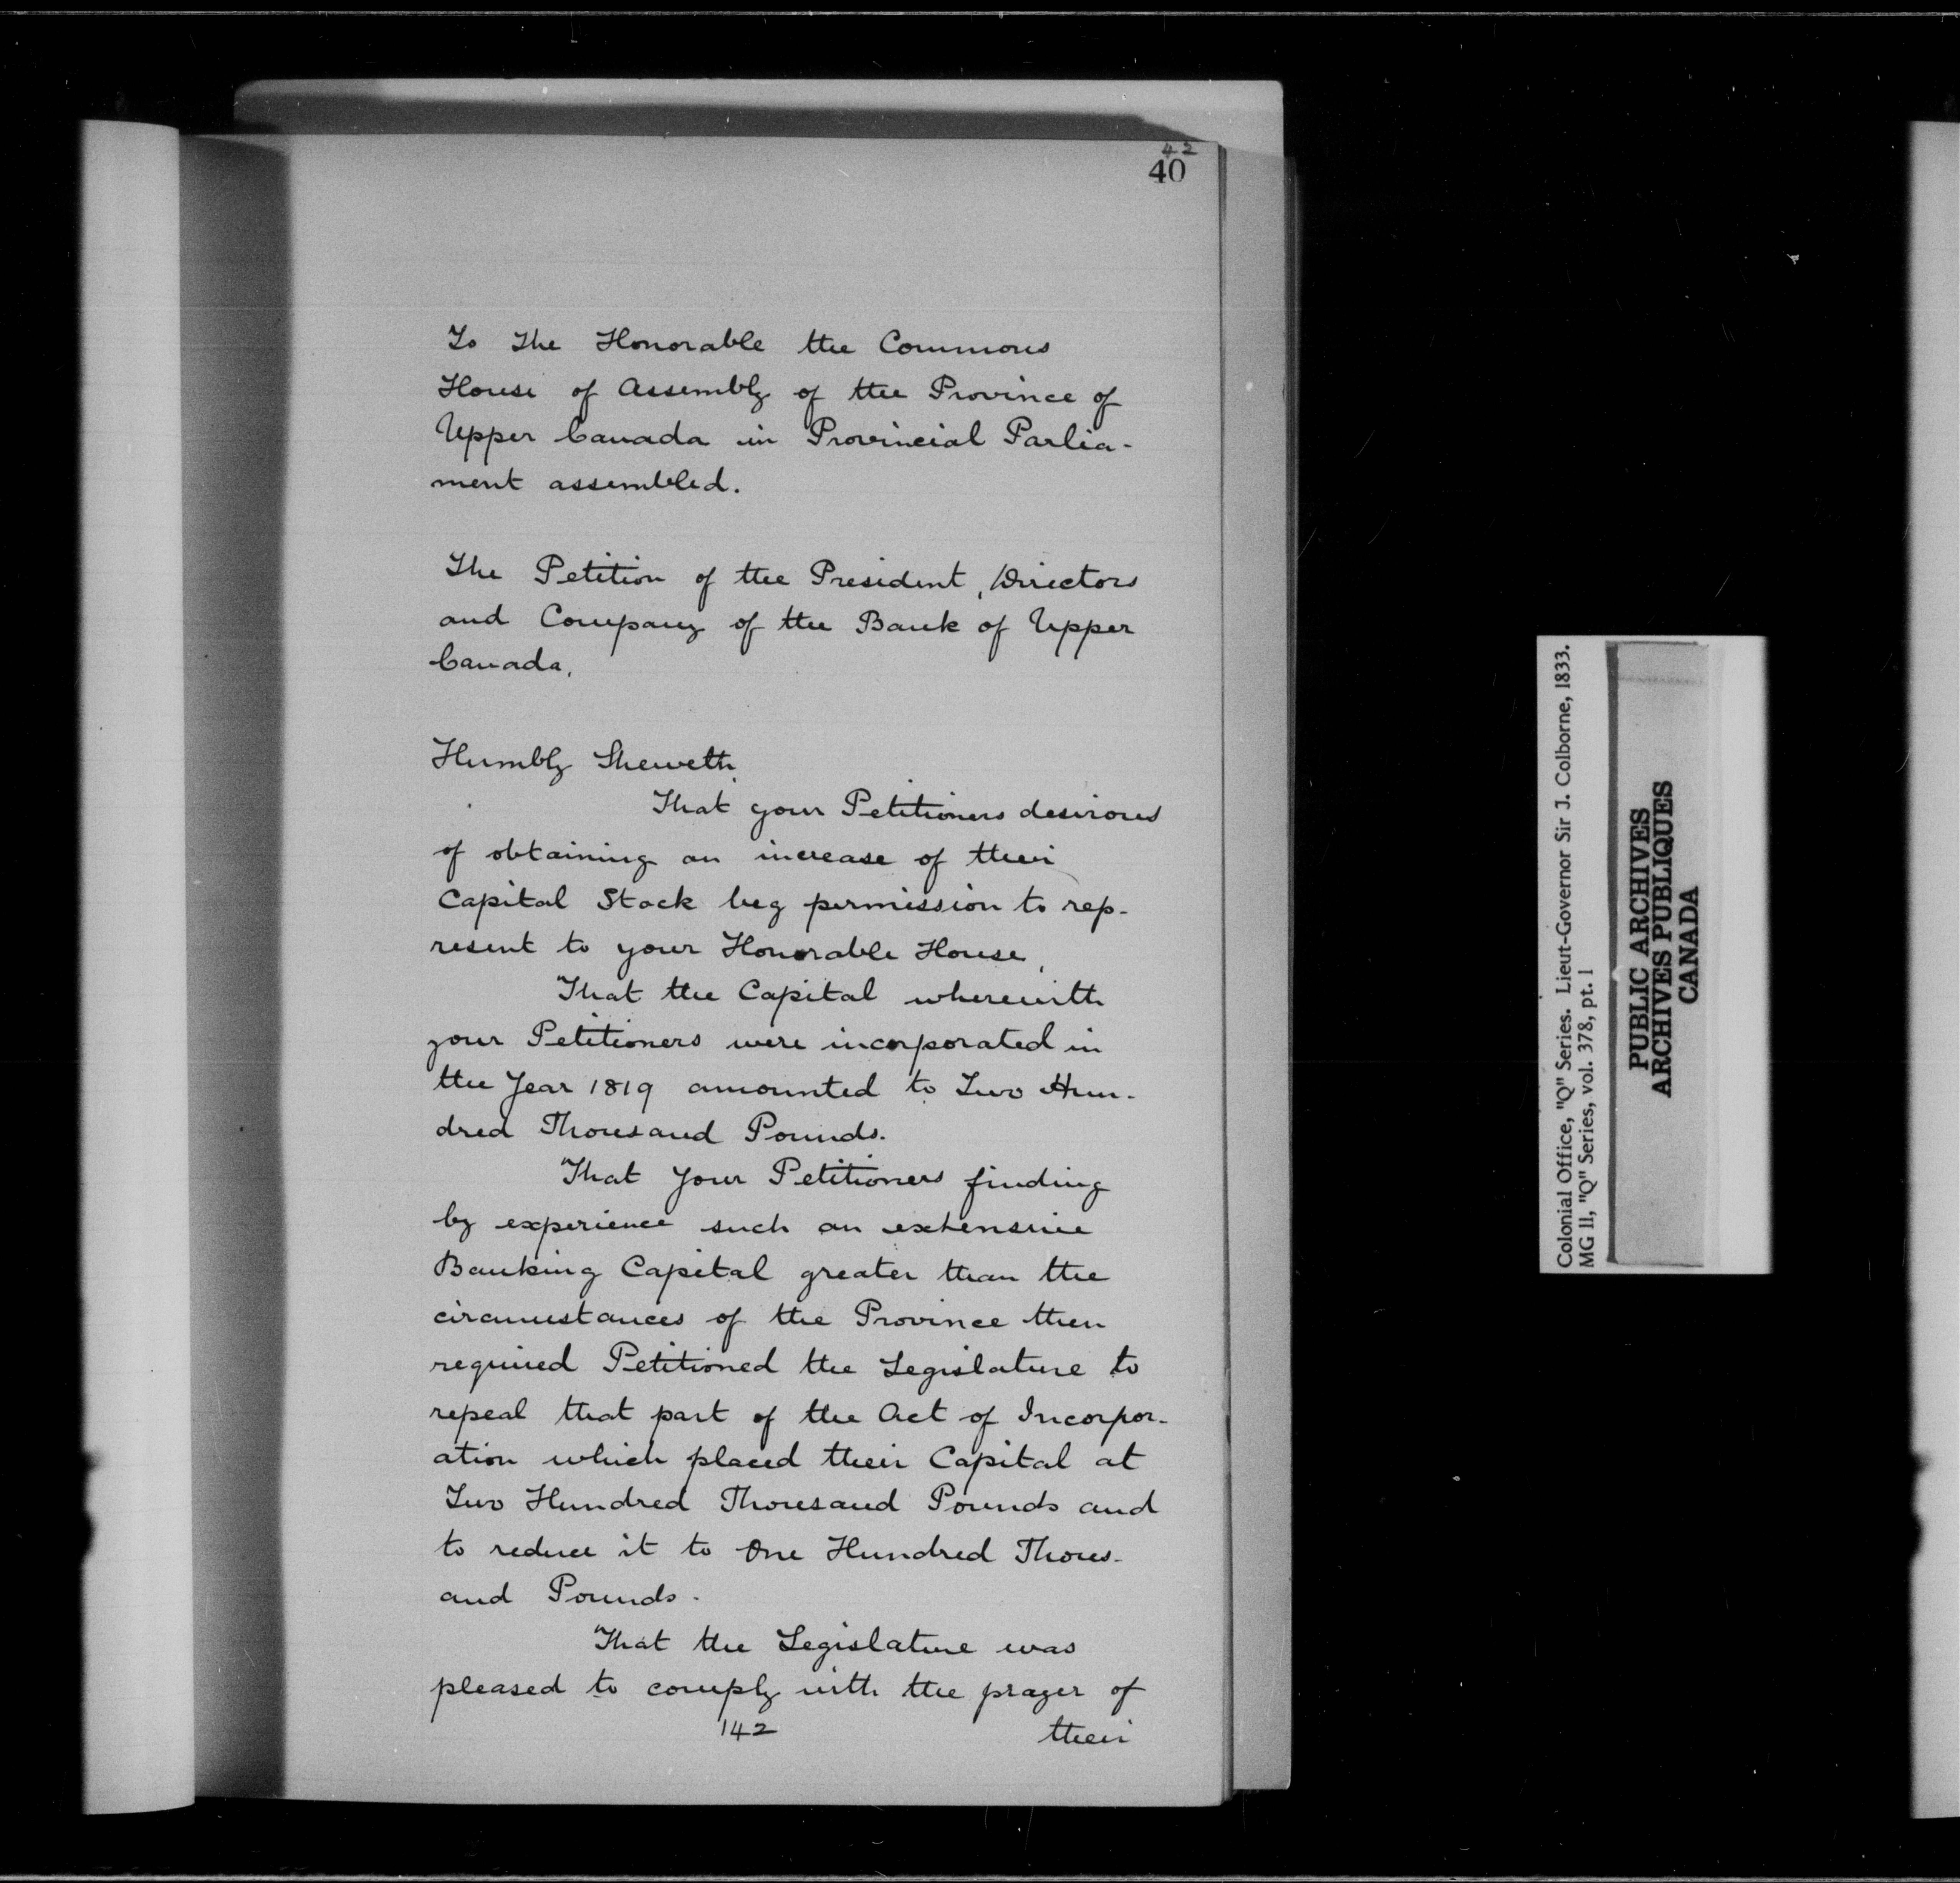 42
40
To The Honorable the Commons
House of Assembly of the Province of
Upper Canada in Provincial Parlia-
ment assembled.
The Petition of the President, Directors
and Company of the Bank of Upper
Canada,
Humbly Sheweth,
That your Petitioners desirous
of obtaining an increase of their
Capital Stock beg permission to rep-
resent to your Honorable House,
That the Capital wherewith
your Petitioners were incorporated in
the Year 1819 amounted to Two Hun-
dred Thousand Pounds.
That Your Petitioners finding
by experience such an extensive
Banking Capital greater than the
circumstances of the Province then
required Petitioned the Legislature to
repeal that part of the Act of Incorpor-
ation which placed their Capital at
Two Hundred Thousand Pounds and
to reduce it to One Hundred Thous-
and Pounds.
That the Legislature was
pleased to comply with the prayer of
142
their
Colonial Office, "Q" Series. Lieut-Governor Sir J. Colborne, 1833.
MG 11, "Q" Series, vol. 378, pt. 1
PUBLIC ARCHIVES
ARCHIVES PUBLIQUES
CANADA